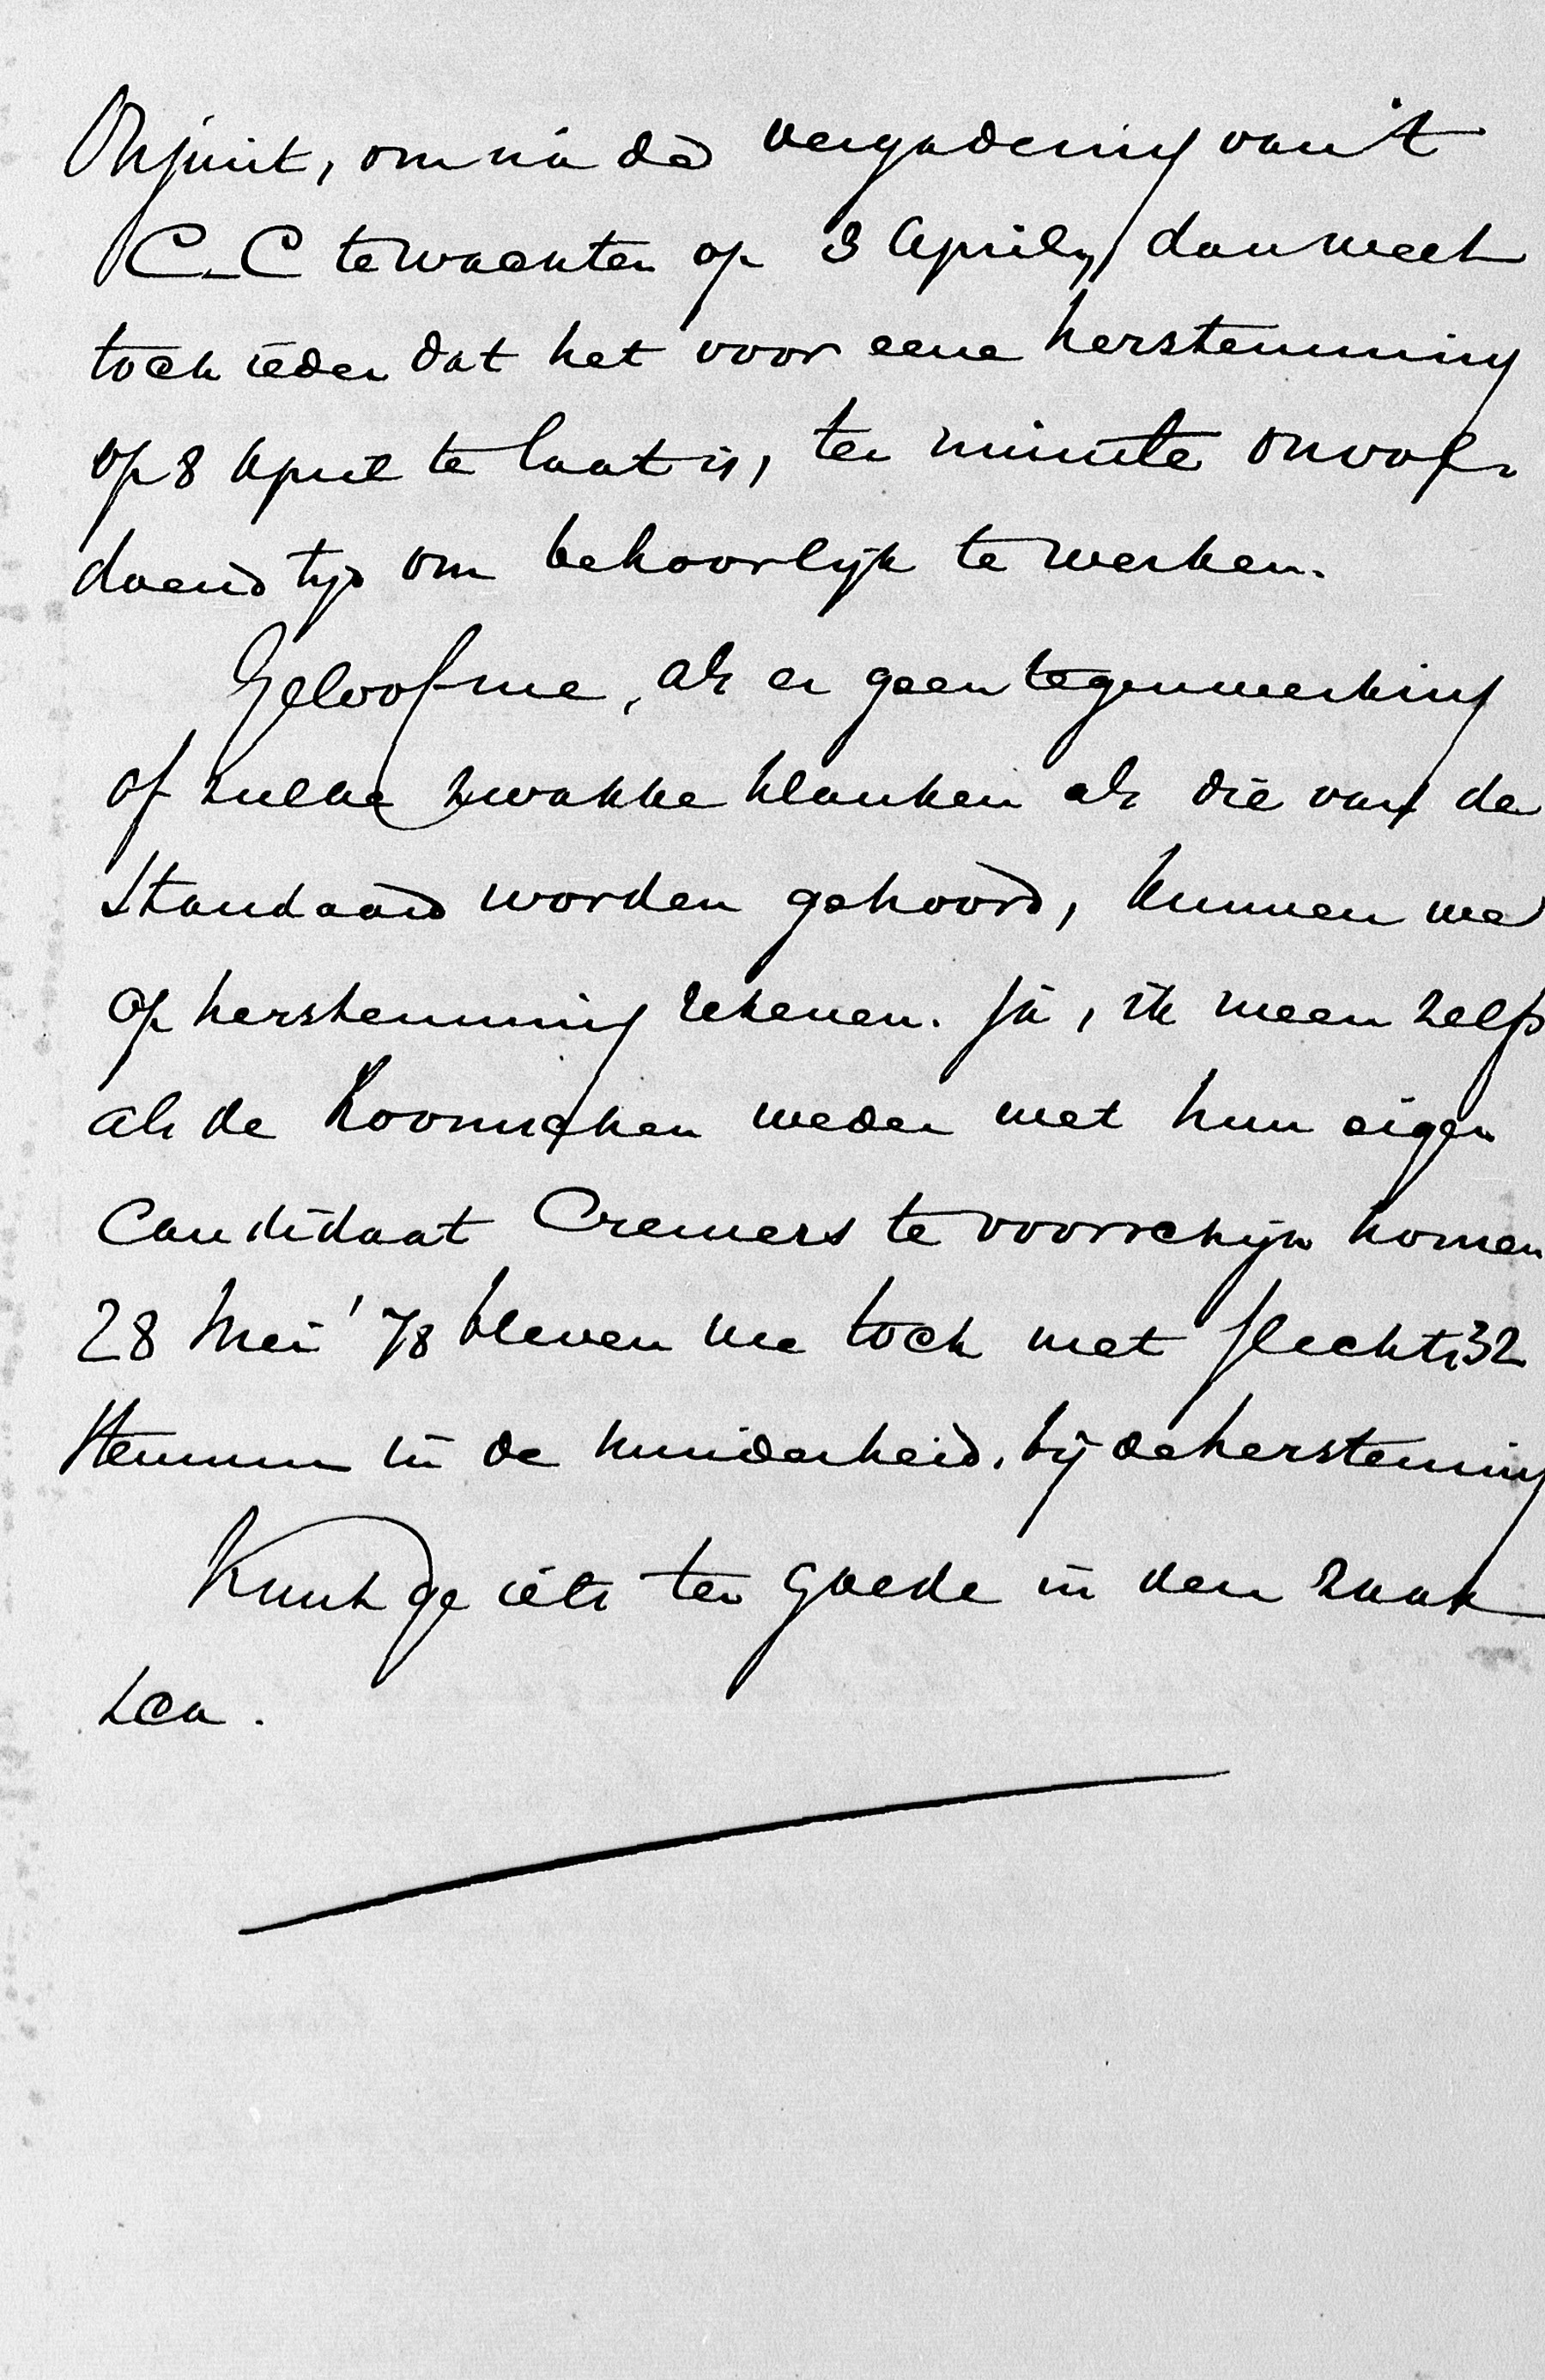 Onjuist, om na de vergadering van 't
C-C te wachten op 3 April, dan weet
toch ieder dat het voor eene herstemming
op 8 April te laat is, ten minste onvol-
doend tijd om behoorlijk te werken.
Geloof me, als er geen tegenwerking
of zulke zwakke klanken als die van de
Standaard worden gehoord, kunnen we
op herstemming rekenen. Ja, ik meen zelfs
als de Roomschen weder met hun eigen
Candidaat Cremers te voorschijn komen
28 Mei '78 bleven we toch met slechts 32
stemmen in de minderheid. bij de herstemming
Kunt ge iets ten goede in den zaak